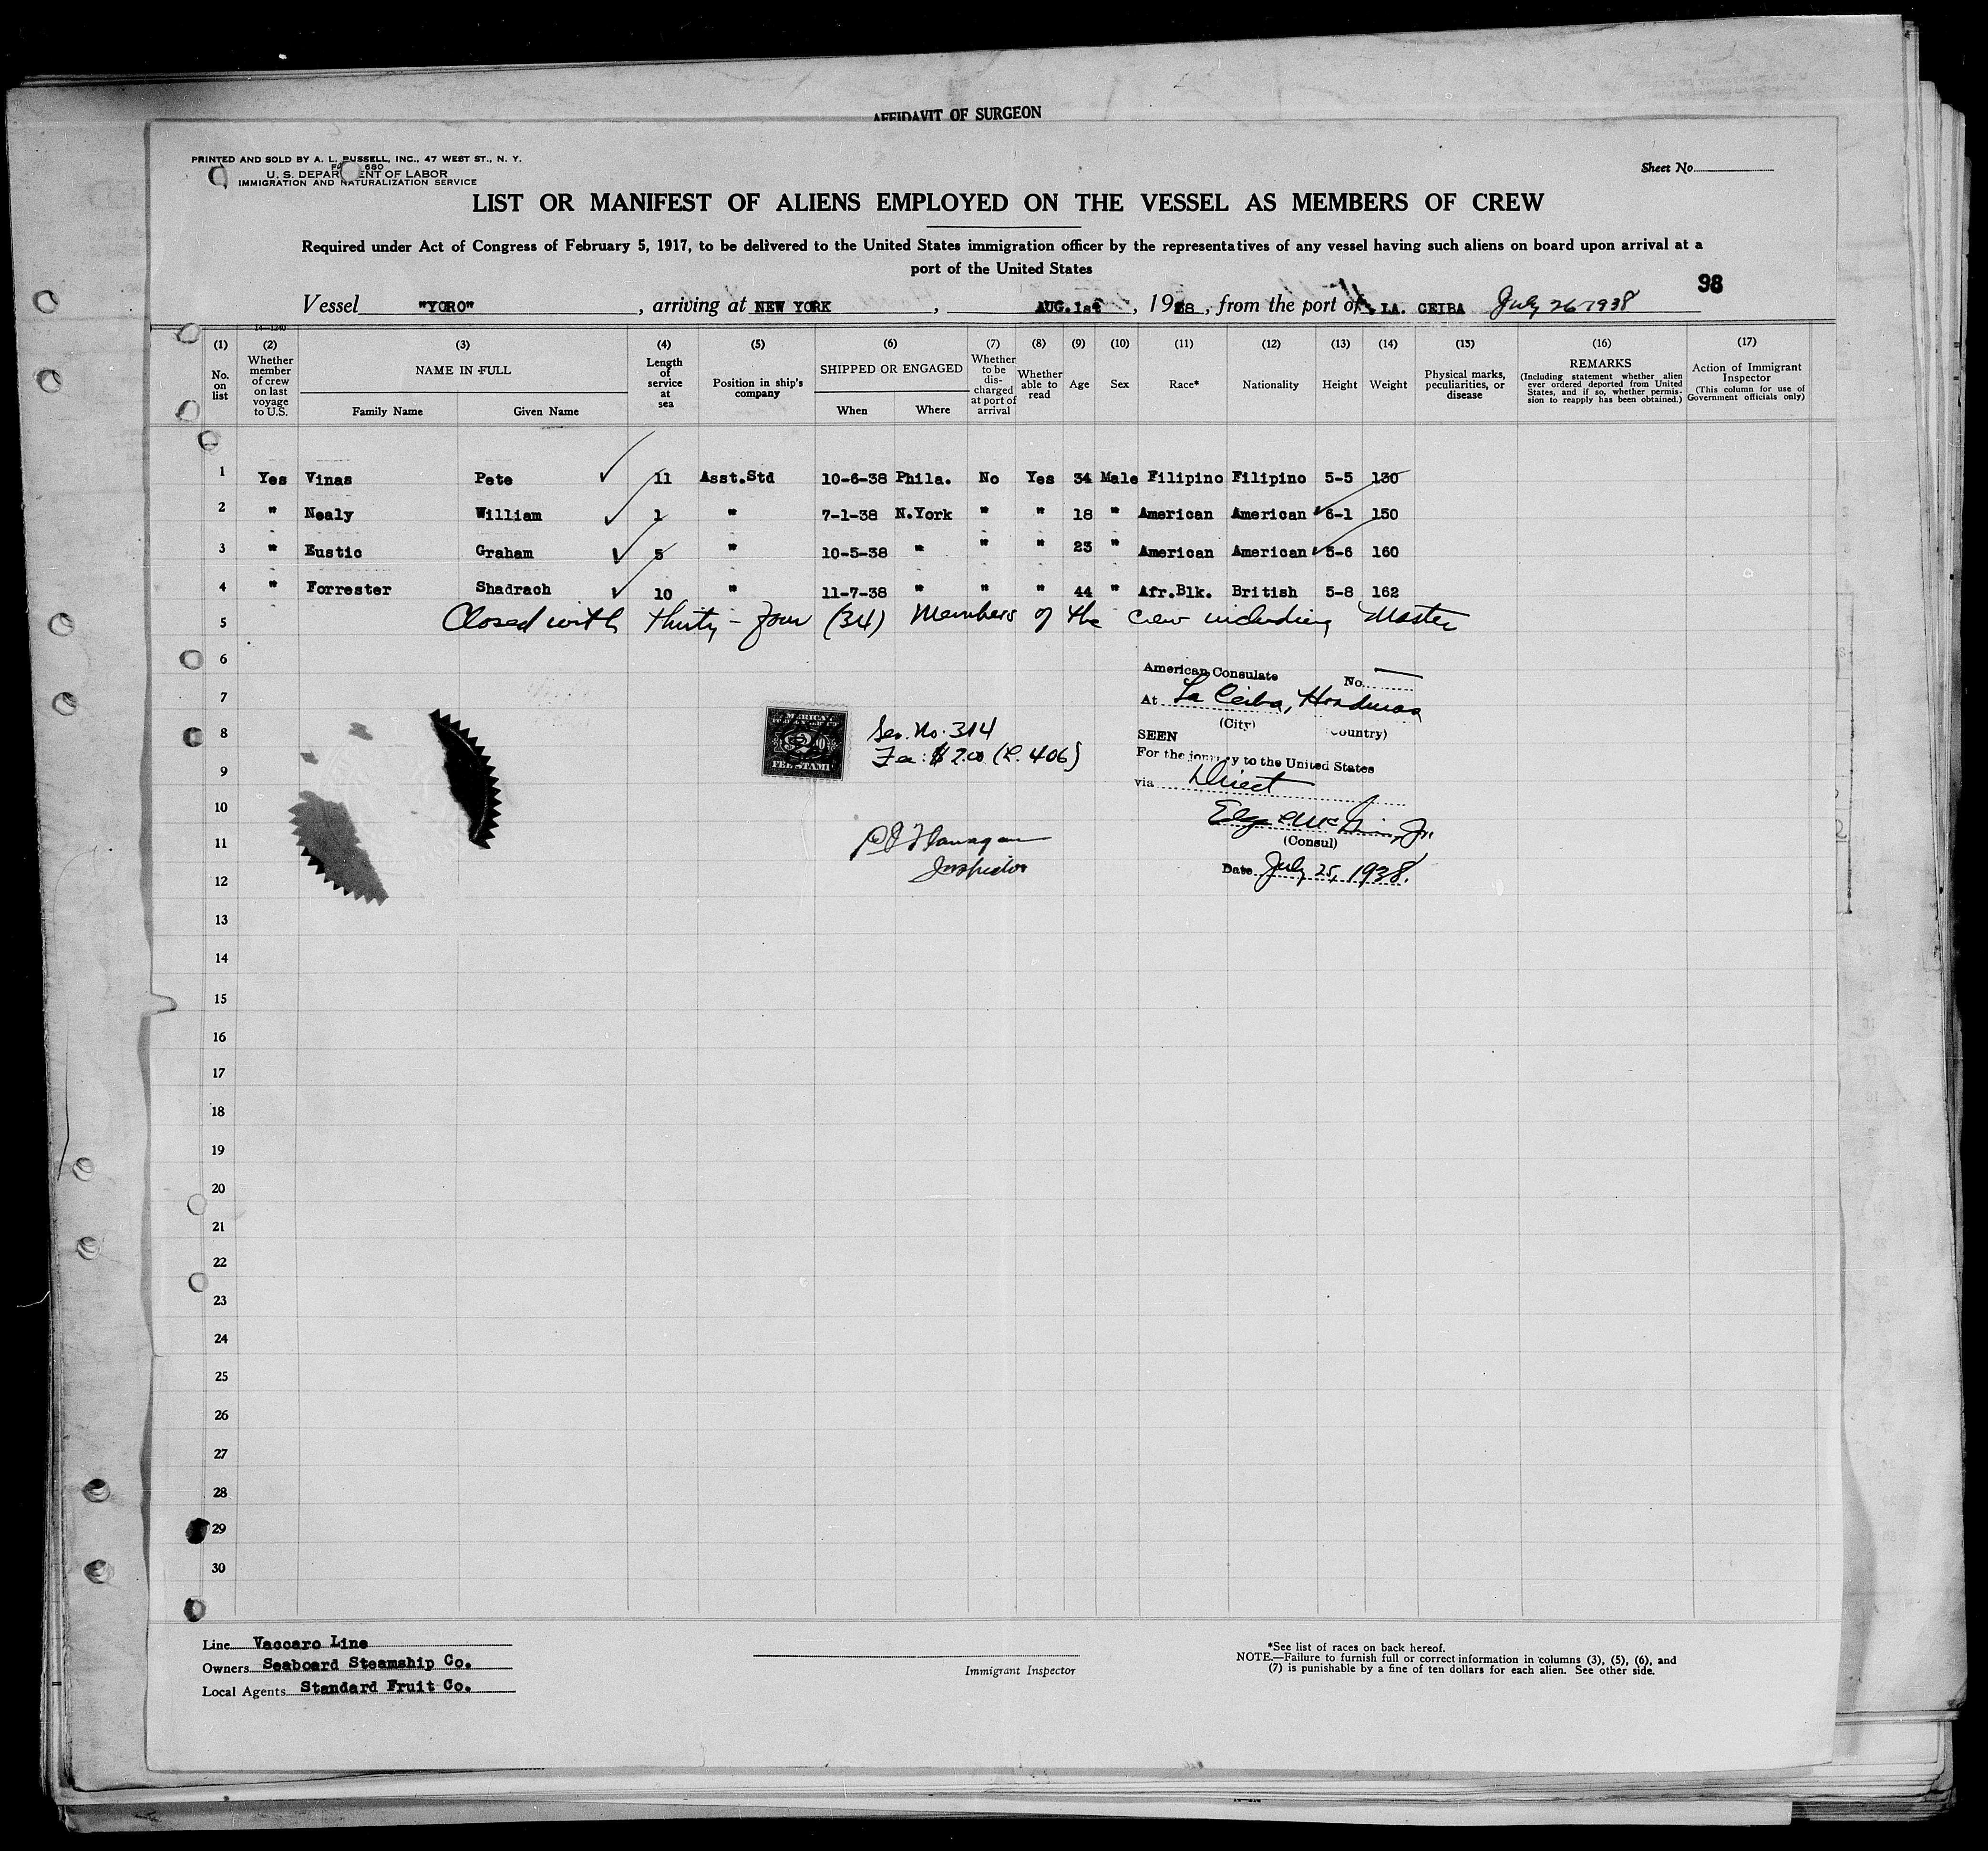 AFFIDAVIT OF SURGEON
PRINTED AND SOLD BY A. L. RUSSELL, INC., 47 WEST ST., N. Y.
680
U. S. DEPARTMENT OF LABOR
IMMIGRATION AND NATURALIZATION SERVICE
Sheet No.
LIST OR MANIFEST OF ALIENS EMPLOYED ON THE VESSEL AS MEMBERS OF CREW
Required under Act of Congress of February 5, 1917, to be delivered to the United States immigration officer by the representatives of any vessel having such aliens on board upon arrival at a
port of the United States
98
Vessel "YORO", arriving at NEW YORK, AUG. 1st, 1938, from the port of LA. CEIBA July 26 1938
14—1240
(1) No. on list
(2) Whether member of crew on last voyage to U.S.
(3) NAME IN FULL Family Name Given Name
(4) Length of service at sea
(5) Position in ship's company
(6) SHIPPED OR ENGAGED When Where
(7) Whether to be discharged at port of arrival
(8) Whether able to read
(9) Age
(10) Sex
(11) Race*
(12) Nationality
(13) Height
(14) Weight
(15) Physical marks, peculiarities, or disease
(16) REMARKS (Including statement whether alien ever ordered deported from United States, and if so, whether permission to reapply has been obtained.)
(17) Action of Immigrant Inspector (This column for use of Government officials only)
1 Yes Vinas Pete 11 Asst.Std 10-6-38 Phila. No Yes 34 Male Filipino Filipino 5-5 130
2 " Nealy William 1 " 7-1-38 N.York " " 18 " American American 6-1 150
3 " Eustic Graham 5 " 10-5-38 " " " 23 " American American 5-6 160
4 " Forrester Shadrach 10 " 11-7-38 " " " 44 " Afr.Blk. British 5-8 162
5 Closed with thirty-four (34) Members of the crew including Master
6
7
8
9
10
11
12
13
14
15
16
17
18
19
20
21
22
23
24
25
26
27
28
29
30
American Consulate No.
At La Ceiba, Honduras
(City) (Country)
SEEN
For the journey to the United States
via Direct
(Consul)
Date July 25, 1938.
FEE STAMP
Ser. No. 314
Fee: $2.00 (L. 406)
Flanagan
Inspector
Line Vaccaro Line
Owners Seaboard Steamship Co.
Local Agents Standard Fruit Co.
Immigrant Inspector
*See list of races on back hereof.
NOTE.—Failure to furnish full or correct information in columns (3), (5), (6), and
(7) is punishable by a fine of ten dollars for each alien. See other side.